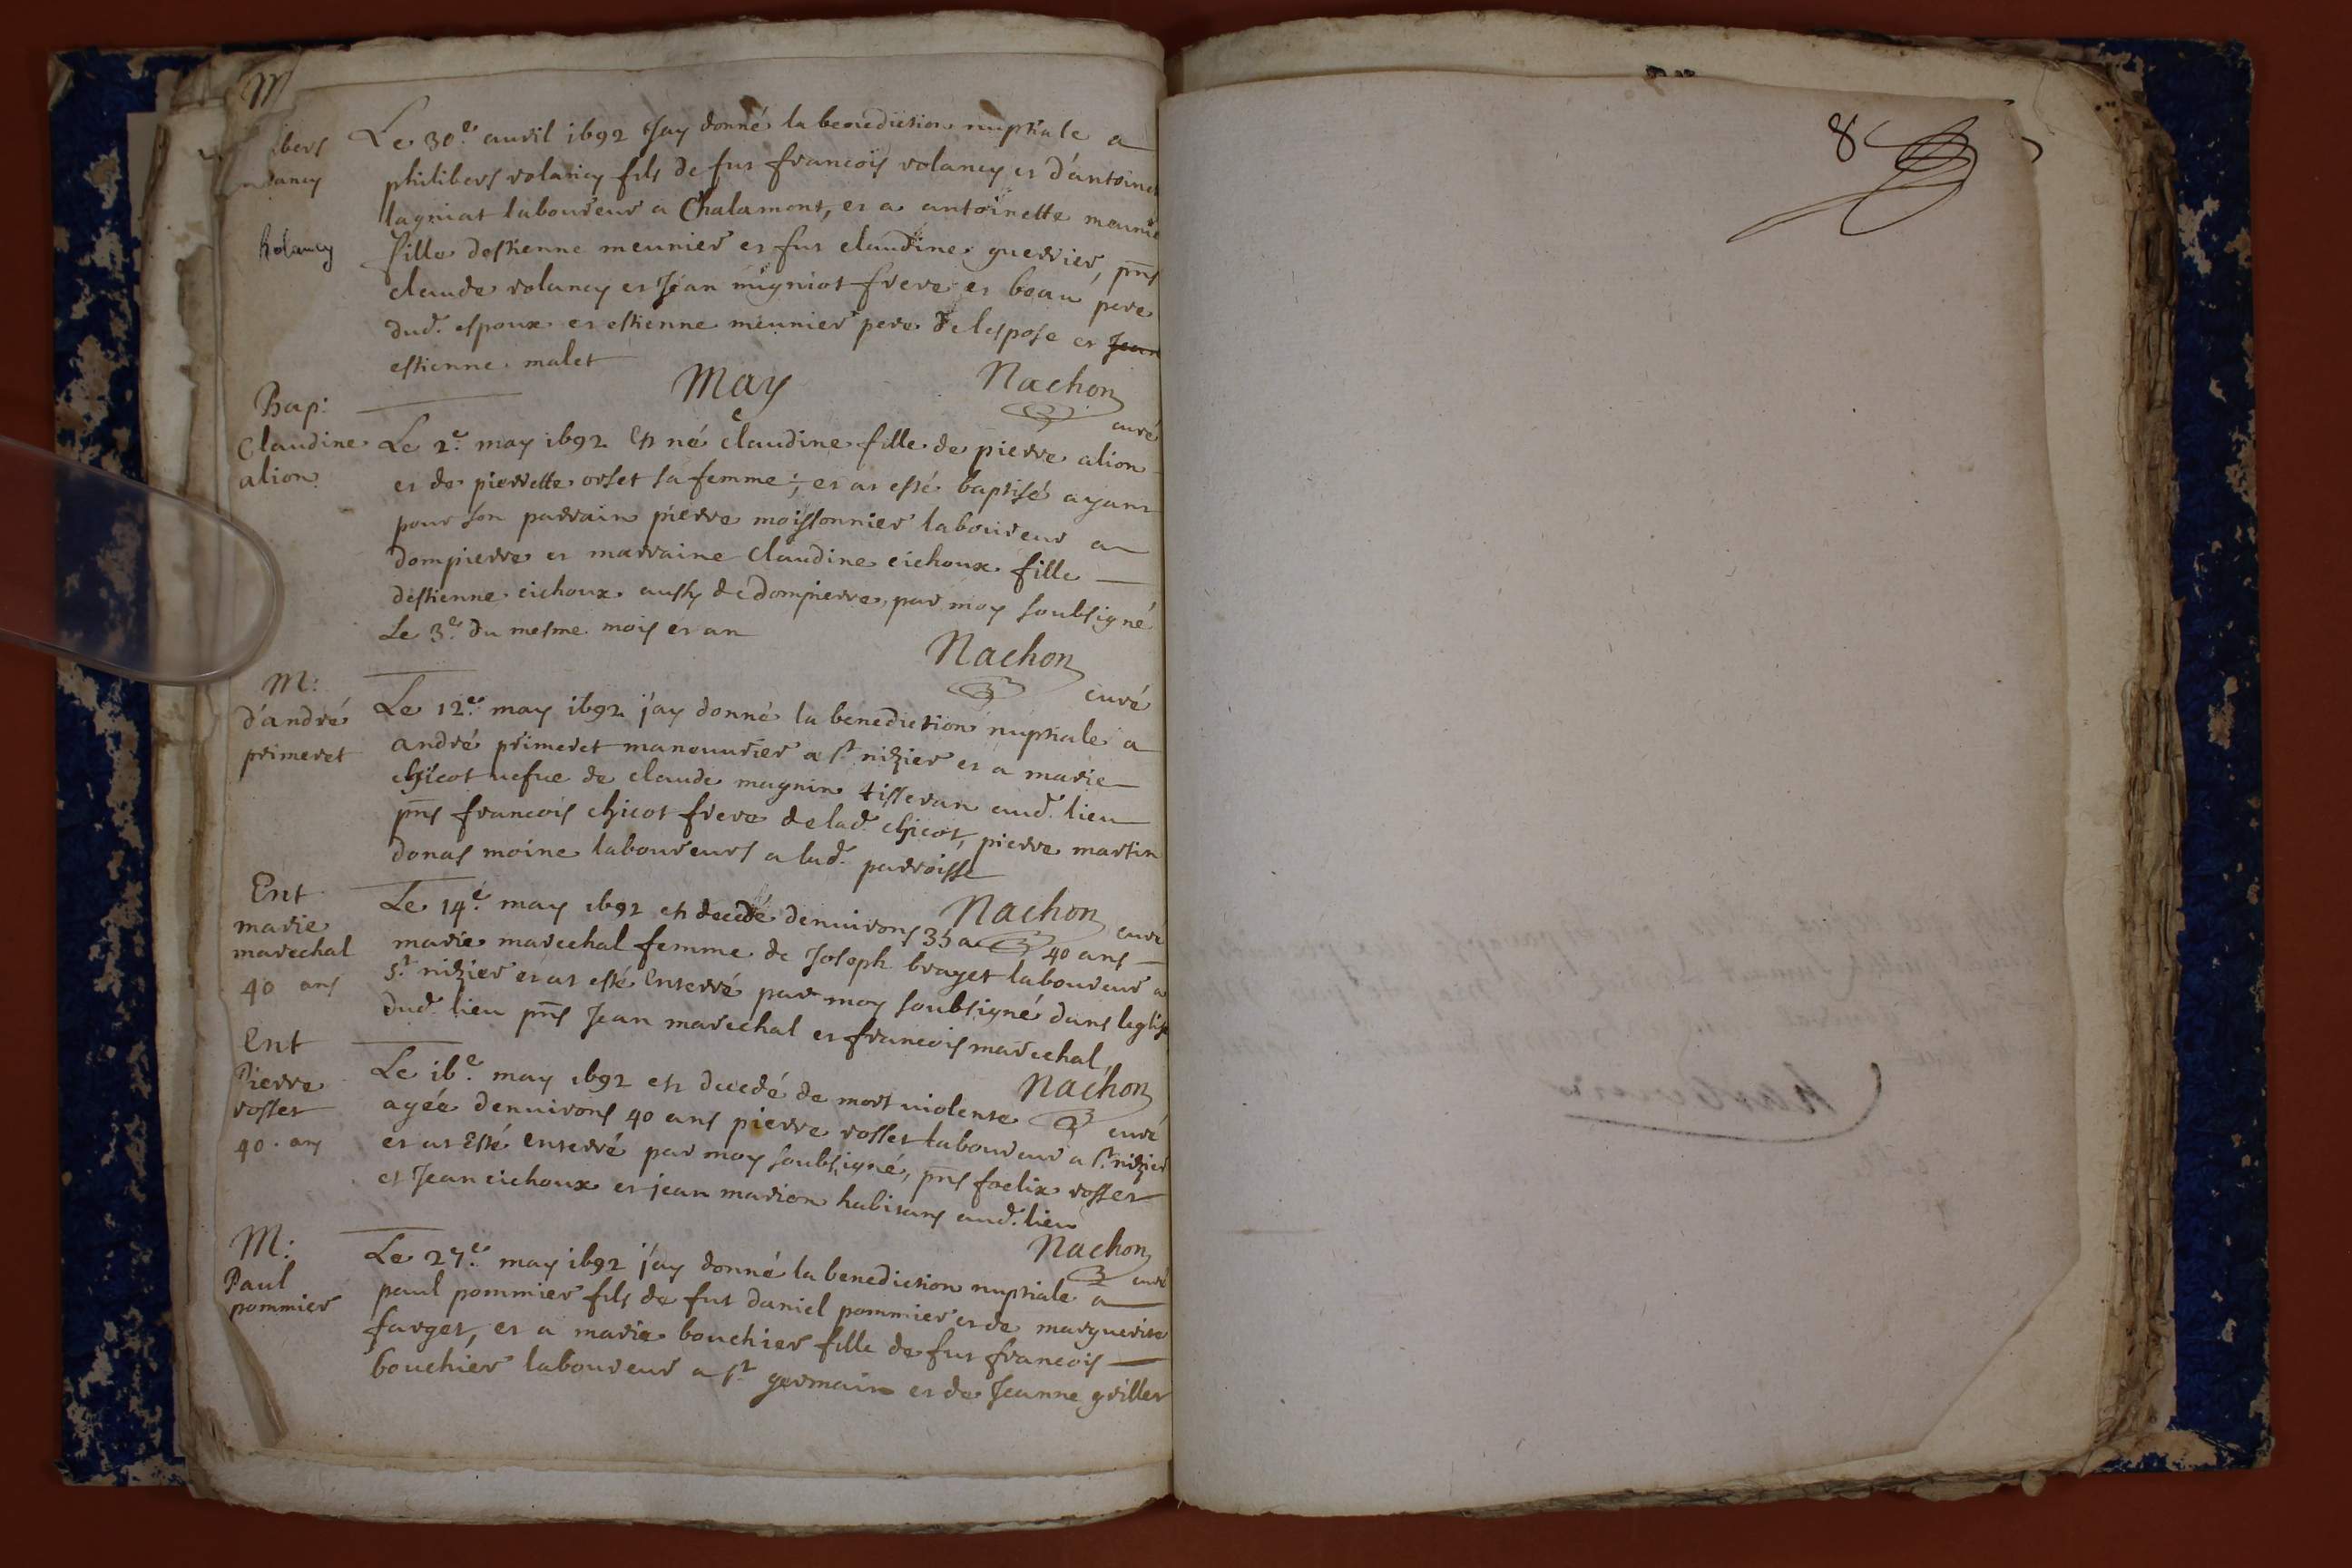 M
Le 30.e auril 1692 Jay donné la benediction nuptiale a
philibert rolancy fils de fut francois rolancy et dantoinet
lagniat laboureur a Chalamont, et a antoinette meunie
fille destienne meunier et fut claudine guerrier, pnts
claude rolancy et Jean migniot frere et beau pere
dud. espoux et estienne meunier pere de lespose et Jean
estienne malet
bert
rolancy
Rolancy
May
Nachon
curé
Bap:
Claudine
alion
Le 2.e may 1692 est né claudine fille de pierre alion
et de pierrette orset sa femme; et at esté baptisé ayant
pour son parrain pierre moissonnier laboureur a
dompierre et marraine Claudine cichoux fille
destienne cichoux aussy de dompierre, par moy soubsigné
Le 3.e du mesme mois et an
Nachon
curé
M:
d'andré
primeret
Le 12.e may 1692 jay donné la benediction nuptiale a
andré primeret manouurier a st nizier et a marie
chicot uefue de claude magnin tisseran aud. lieu
pnts francois chicot frere de lad. chicot, pierre martin
donas moine laboureurs a lad. parroisse
Nachon curé
Ent
marie
marechal
40 ans
Le 14.e may 1692 est decedé denuirons 35 a 40 ans
marie marechal femme de Joseph brayet laboureur a
st nizier et at esté Enterré par moy soubsigné dans leglise
dud. lieu pnts Jean marechal et francois marechal
Nachon
curé
Ent
Pierre
rosset
40. ans
Le 16.e may 1692 est decedé de mort uiolente
agée denuirons 40 ans pierre rosset laboureur a st nizier
et at Esté enterré par moy soubsigné, pnts foelix rosset
et Jean cichoux et jean marion habitans aud. lieu
Nachon
curé
M:
Paul
pommier
Le 27.e may 1692 jay donné la benediction nuptiale a
paul pommier fils de fut daniel pommier et de marguerite
farget, et a marie bouchier fille de fut francois
bouchier laboureur a st germain et de Jeanne grillet
8